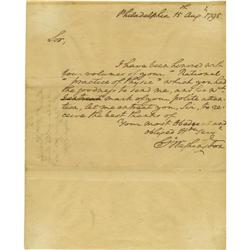 Philadelphia 15th Augt 1795
Sir,
I have been honored with
two volumes of your "National
practice of Physic" which you had
the goodness to send me, and for this
mark of your polite atten-
tion, let me entreat you, Sir, to re-
ceive the best thanks of
Your most Obedient and
obliged Hble Servt
Go Washington